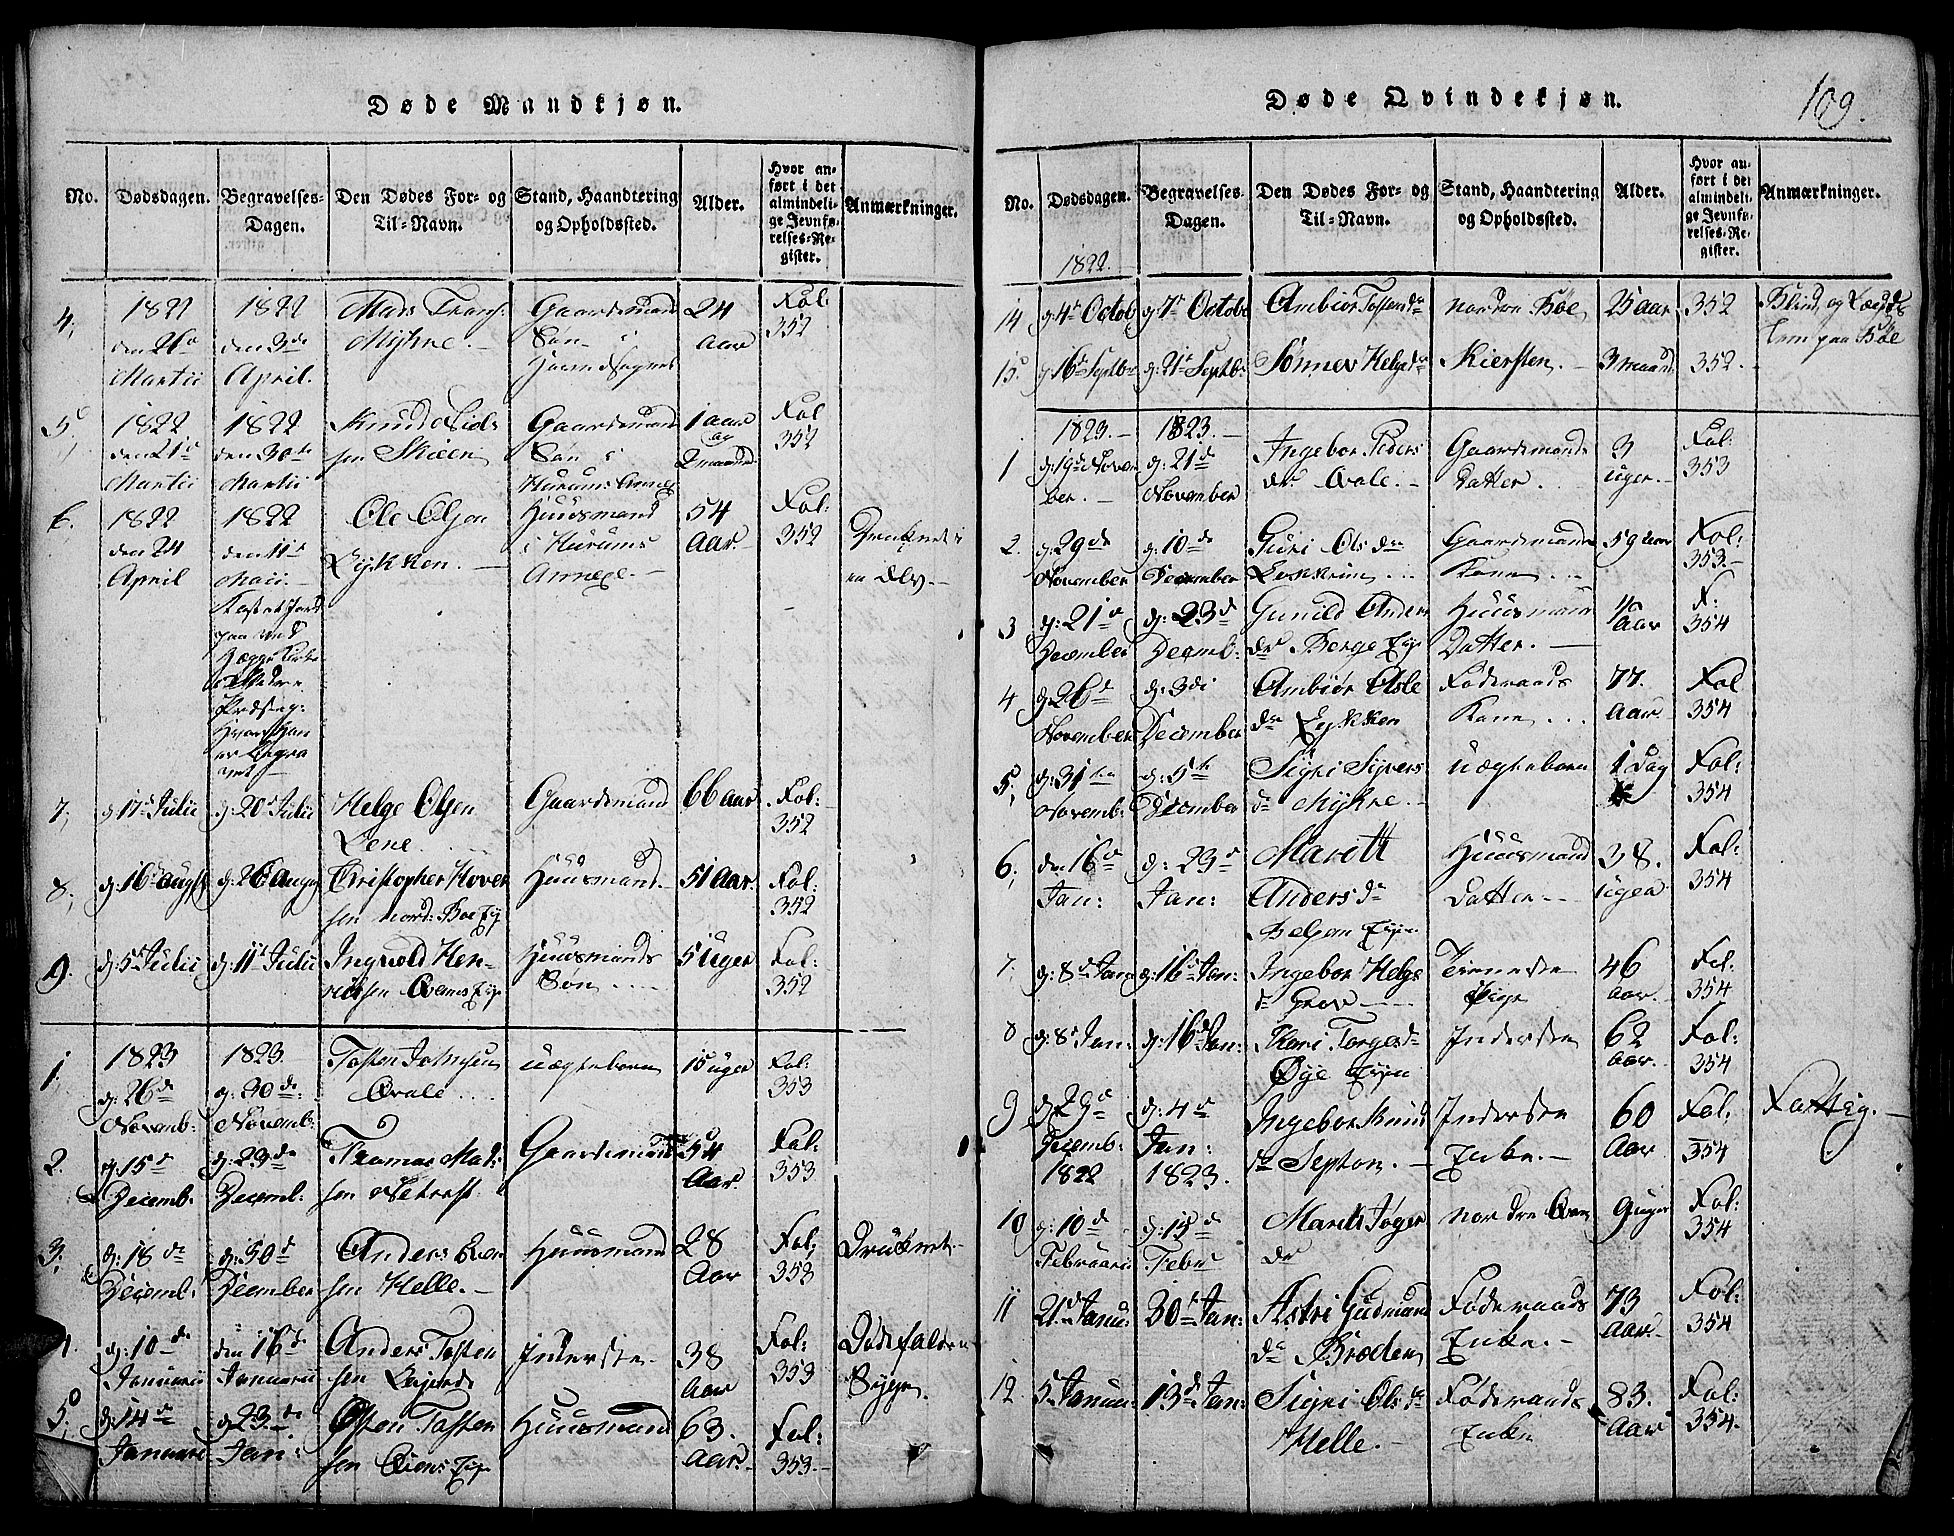 Døde Mandkjøn.
No.
Dødsdagen.
Begravelses-
Dagen.
Den Dødes For- og
Til-Navn.
Stand, Haandtering
og Opholdssted.
Alder.
Hvor an-
ført i det
almindeli-
ge Jevnfø-
relses-Re-
gister.
Anmærkninger.
4,
1822
den 26
Martii
1822
den 3de
April.
Mads
Mykne.
Gaardmand
Søn i
24
Aar
Fol:
352
5,
1822
den 21
Martii
1822
den 30te
Martii
Knud
sen Skien
Gaardmand
Søn i
Hurums Annex
1 aar
og
2 maaned
Fol
352
6.
1822
den 24
April
1822
den 11te
Maii.
Ole Olsen
Lykken.
Huusmand
i Hurums
Annexe.
54
Aar.
Fol:
352
Druknet i
en Elv.
7,
d: 17de Julii
d: 20de Julii
Helge Olsen
Lene.
Gaardmand
66 aar
Fol:
352
8,
d: 16de Augst
d: 26de Augst
Christopher Hover
sen nord: Boe Eje
Huusmand
51 Aar.
Fol:
352
9.
d: 5te Julii
d: 11te Julii
Ingvold Hen-
richsen Qvams Eje
Huusmands
Søn
5 Uger
Fol:
352
1.
1823
d: 26de
Novemb:
1823
d: 30de
Novemb:
Tosten Johnsen
Qvale
uægteborn
15 uger
Fol:
353
2.
d: 15de
Decemb:
d: 23de
Decemb:
Thomas Mads
sen
Gaardmand
54
Aar.
Fol:
353
3,
d: 18de
Decemb:
d: 30d
December
Anders
sen Helle.
Huusmand
28
Aar
Fol;
353
Druknet
4.
d: 10de
Januarii
den 16de
Januarii
Anders Tosten
sen
Inderste
38
Aar
Fol:
353
5,
d: 14de
Januari
d: 23de
Jan:
Østen Tosten
sen Øiens Eje
Huusmand
63.
Aar.
Fol:
353.
Døde Qvindekjøn.
109.
No.
Dødsdagen.
Begravelses-
Dagen.
Den Dødes For- og
Til-Navn.
Stand, Haandtering
og Opholdssted.
Alder.
Hvor an-
ført i det
almindeli-
ge Jevnfø-
relses-Re-
gister.
Anmærkninger.
1822.
14
d: 4de Octob
d: 7de Octobr
Ambiør Tostensdr
nordre Bøe
25 aar
352
Blind, og Lægds
Lem paa Bøe
15.
d: 16de Septbr
d: 21de Septbr
Sønnev Helgedr
Kiersten.
3 maaned
352.
1
1823.
d: 19de Novem
ber.
1823.
d: 21de
November
Ingebor Peders
dr Qvale.
Gaardmands
Datter.
3
uger.
Fol:
353
2.
d: 29de
November
d: 10de
December
Guri Olsdr
Gaardmands
Kone
59 aar
Fol:
353.
3
d: 21de
December
d: 23d
Decemb:
Gunild Anders
dr Berge Eje
Huusmands
Datter.
4
Aar
F:
354
4
d: 26de
November
d: 3di
December
Ambiør Asle
dr Lykken
Føderaads
Kone
77.
Aar
Fol
354
5,
d: 31te
Novemb:
d: 5te
December
Sigri Sivers
dr Mykne.
uægteborn
1 Dag
Fol:
354
6,
den 16de
Jan:
d: 23de
Jan:
Maritt
Anders dr
Huusmand
Datter
38.
uger
Fol:
354
7.
d: 8de Jan:
d: 16de Jan:
Ingebor Helge
dr
Tieneste
Pige
46
Aar.
Fol.
354
8
d: 8de Jan:
d: 16de Jan:
Kari Torgesdr
Øye Eje
Inderste
62
Aar.
Fol:
354
9
d: 29de
Decemb:
1822
d: 4de
Jan:
1823.
Ingebor Knuds
dr
Inderste
Enke.
60
Aar
Fol;
354
Fattig.
10
d: 10de
Februari
d: 15de
Febr
Marit
dr
nordre Qvam
9 uger
Fol:
354
11
21de Janu:
30te Jan:
Astri Gudmund
dr Brøden
Føderaads
Enke.
73
Aar
Fol:
354
12
5te Januar:
13de Jan:
Sigri Olsdr
Helle.
Føderaads
Enke
83.
Aar
Fol:
354.